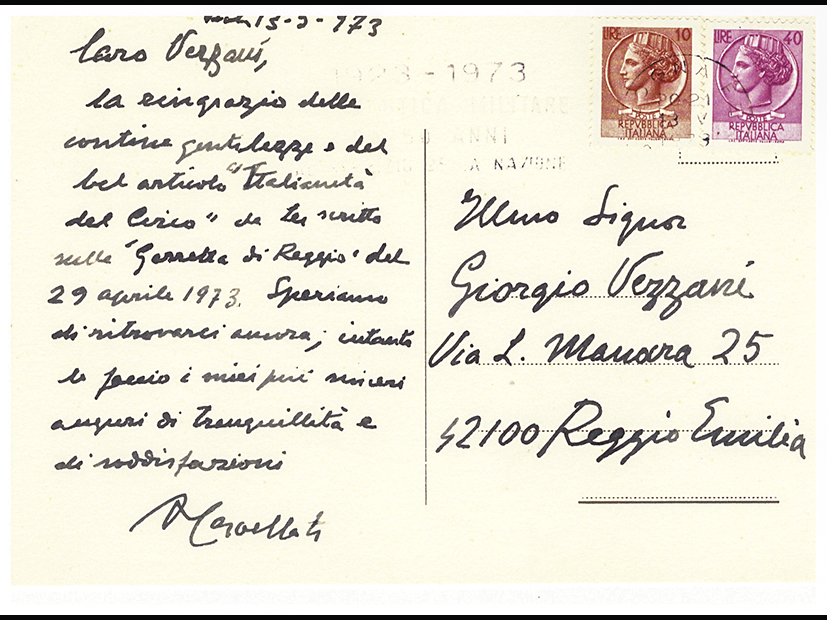 15-5-973
Caro Vezzani,
la ringrazio delle
continue gentilezze e del
bel articolo "Italianità
del Circo" da Lei scritto
sulla "Gazzetta di Reggio" del
29 aprile 1973. Speriamo
di ritrovarci ancora; intanto
le faccio i miei più sinceri
auguri di tranquillità e
di soddisfazioni
A Cervellati
1923-1973
MILITARE
50 ANNI
LA NAZIONE
LIRE 10
POSTE
REPVBBLICA
ITALIANA
LIRE 40
POSTE
REPVBBLICA
ITALIANA
Illmo Signor
Giorgio Vezzani
Via L. Manara 25
42100 Reggio Emilia